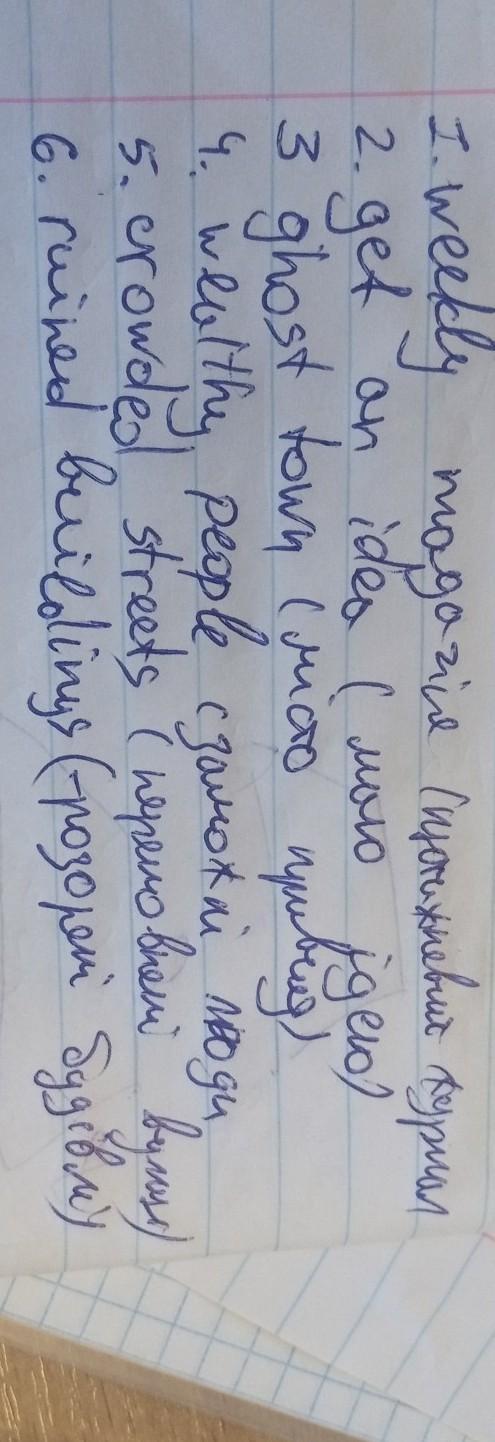 1. weekly magazine (щотижневий журнал
2. get an idea (маю ідею)
3 ghost town (місто привид)
4. wealthy people (заможні люди
5. crowded streets (переповнені вулиці)
6. ruined buildings (розорені будівлі)